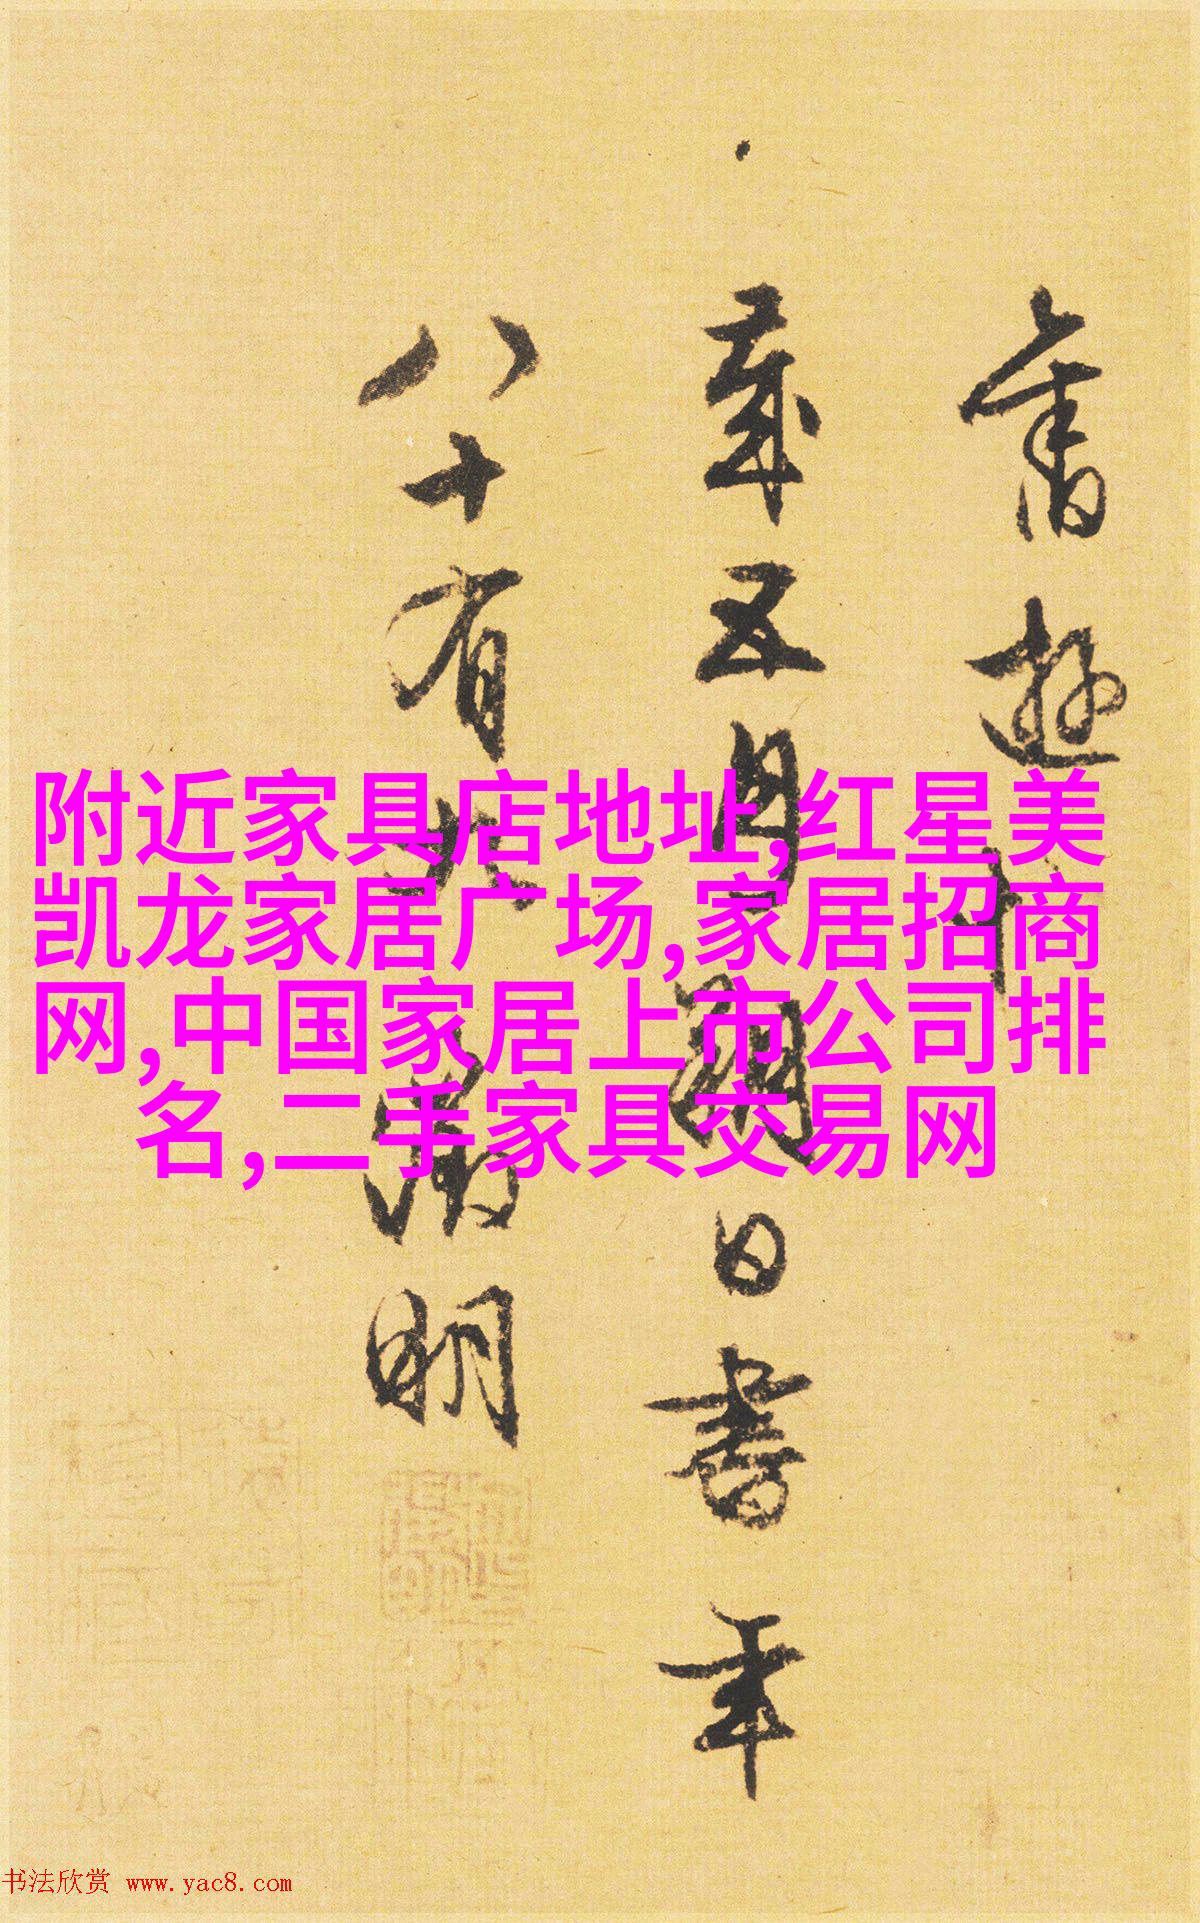 舊遊
歲五月朔日書年
八十有 徵明
附近家具店地址,红星美
凯龙家居广场,家居招商
网,中国家居上市公司排
名,二手家具交易网
书法欣赏 www.yac8.com